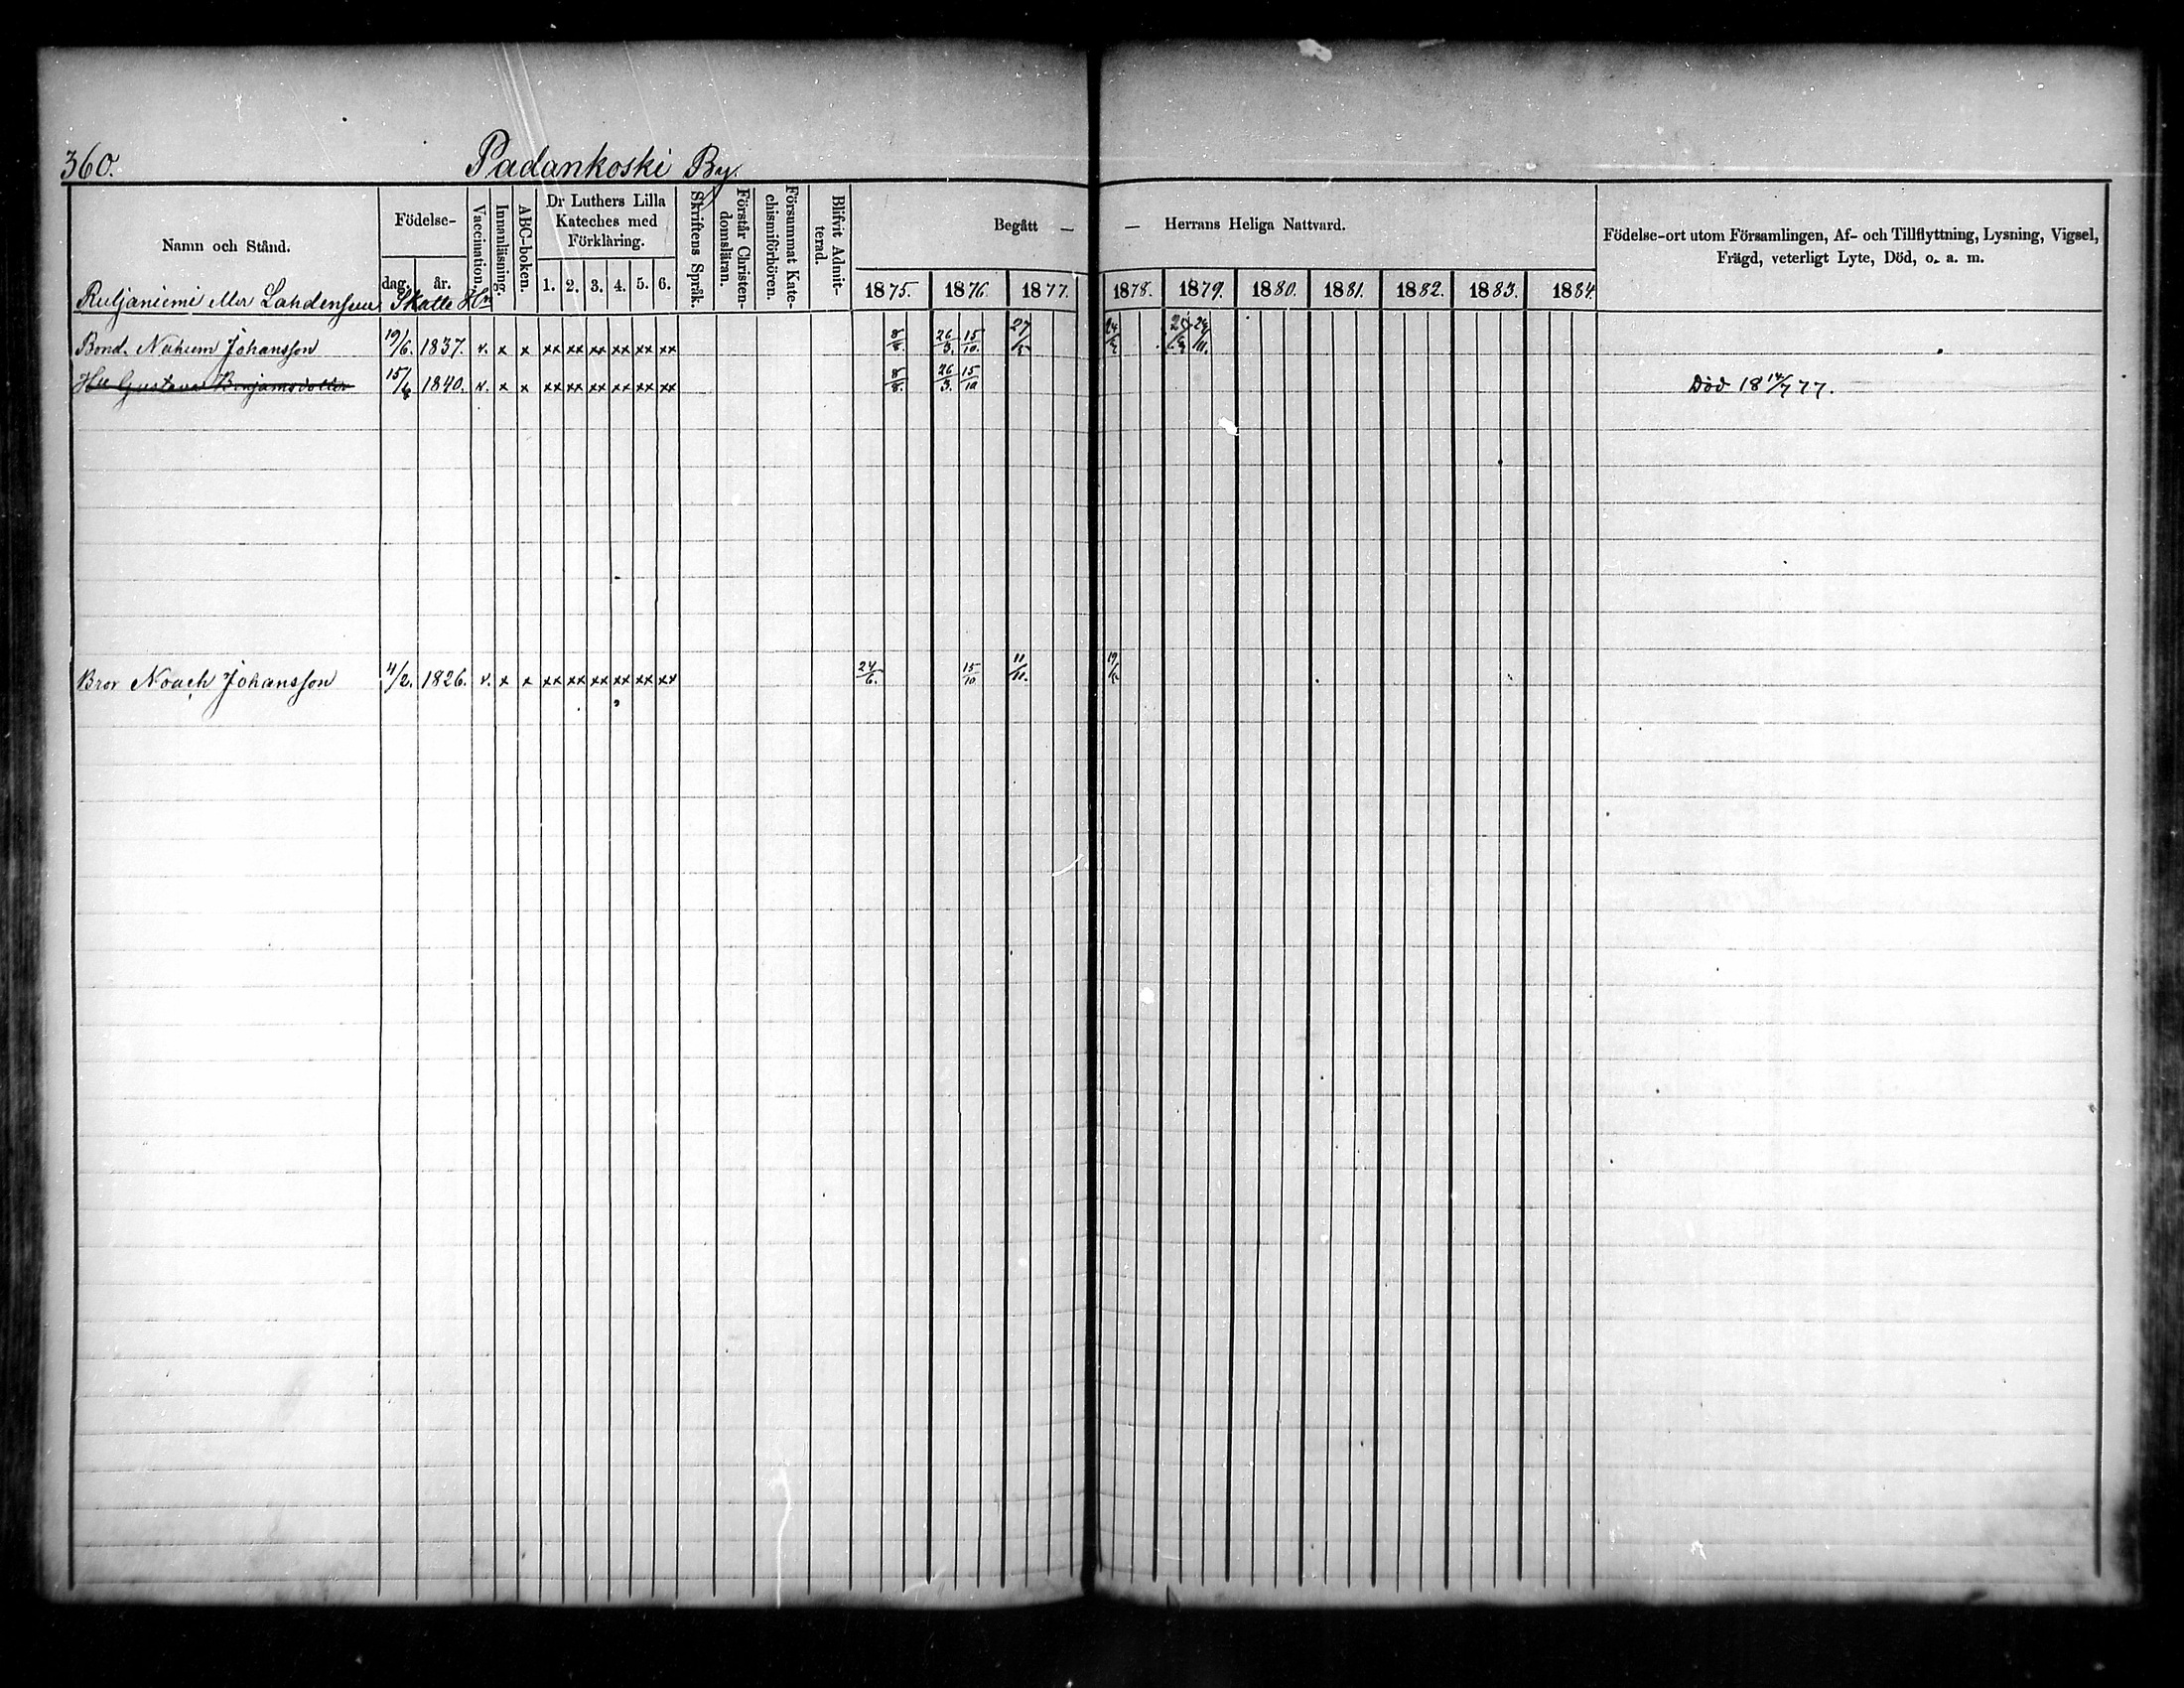 360. Padankoski By.
Namn och Stånd. Födelse- dag. år. Vaccination. Innanläsning. ABC-boken. Dr Luthers Lilla Kateches med Förklaring. 1. 2. 3. 4. 5. 6. Skriftens Språk. Förstår Christendomsläran. Försummat Katechismiförhören. Blifvit Admitterad. Begått — — Herrans Heliga Nattvard. 1875. 1876. 1877. 1878. 1879. 1880. 1881. 1882. 1883. 1884. Födelse-ort utom Församlingen, Af- och Tillflyttning, Lysning, Vigsel, Frägd, veterligt Lyte, Död, o. a. m.
eller Skatte Hn
Bond. Nahum Johansson 19/6. 1837. v. x x xx xx xx xx xx xx 8/8. 26/3. 15/10. 27/5
Hu Gustava Benjamsdotter 15/6 1840. v. x x xx xx xx xx xx xx 8/8. 26/3. 15/10 Död 18 14/7 77.
Bror Noach Johansson 4/2. 1826. v. x x xx xx xx xx xx xx 24/6. 15/10 11/11.